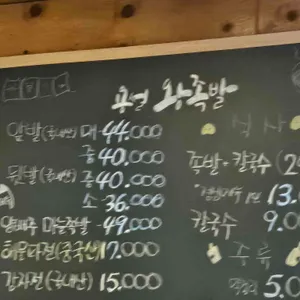 왕족발
앞발(국내산) 대 44.000
중 40.000
뒷발(국내산) 중 40.000
소 36.000
마늘족발 49.000
해물파전(중국산) 17.000
감자전(국내산) 15.000
식사
족발·칼국수 (2
13.
칼국수 9.0
주류
5.0